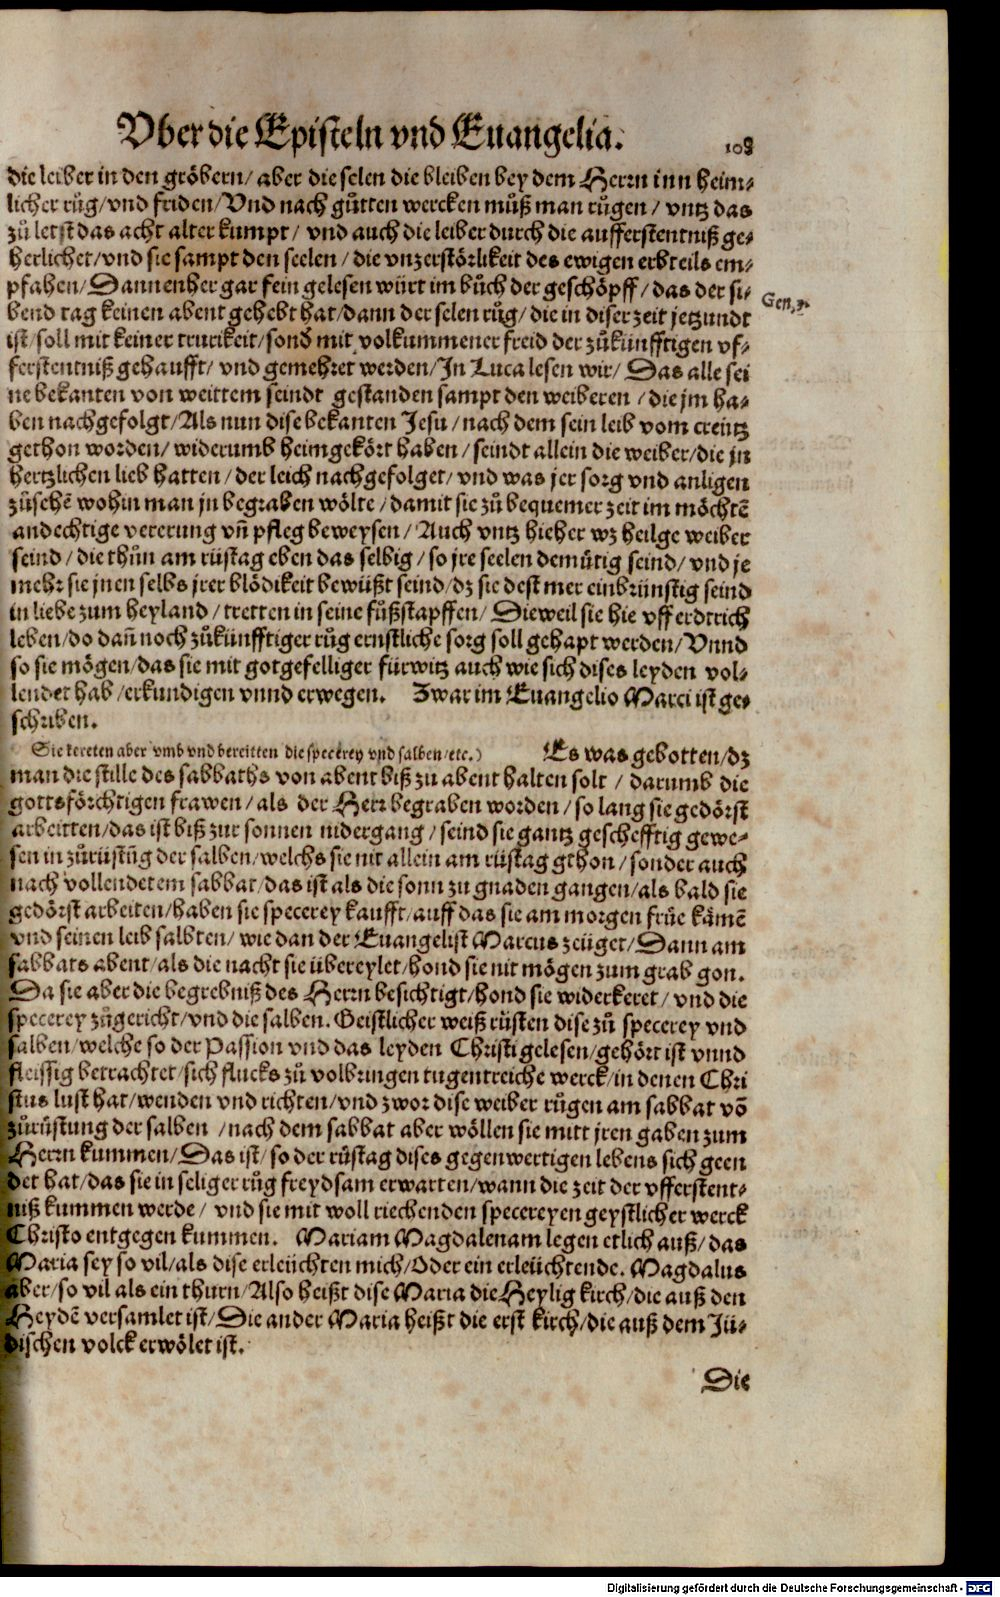 Vber die Episteln vnd Euangelia. 108
die leiber in den gröbern/ aber die selen die bleiben bey dem Herrn inn heim⸗
licher růg/ vnd friden/ Vnd nach gůtten wercken můß man růgen/ vntz das
zů letst das acht alter kumpt/ vnd auch die leiber durch die aufferstentniß ge⸗
herlichet/ vnd sie sampt den seelen/ die vnzerstörlikeit des ewigen erbteils em⸗
pfahen/ Dannenher gar fein gelesen würt im bůch der geschöpff/ das der si⸗
bend tag keinen abent gehebt hat/ dann der selen růg/ die in diser zeit jetzundt
Gen. 2.
ist/ soll mit keiner trurikeit/ sond mit volkummener freid der zůkünfftigen vf⸗
ferstentniß gehaufft/ vnd gemehret werden/ In Luca lesen wir/ Das alle sei
ne bekanten von weittem seindt gestanden sampt den weiberen/ die jm ha⸗
ben nachgefolgt/ Als nun dise bekanten Jesu/ nach dem sein leib vom creütz
gethon worden/ widerumb heimgekört haben/ seindt allein die weiber/ die jn
hertzlichen lieb hatten/ der leich nachgefolget/ vnd was jer sorg vnd anligen
zůsehē wohin man jn begraben wölte/ damit sie zů bequemer zeit im möchtē
andechtige vererung vn̄ pfleg beweysen/ Auch vntz hieher wz heilge weiber
seind/ die thůn am rüstag eben das selbig/ so jre seelen demütig seind/ vnd je
mehr sie jnen selbs jrer blödikeit bewüßt seind/ dz sie dest mer einbrünstig seind
in liebe zum heyland/ tretten in seine fůßstapffen/ Dieweil sie hie vff erdtrich
leben/ do dan̄ noch zůkünfftiger růg ernstliche sorg soll gehapt werden/ Vnnd
so sie mögen/ das sie mit gotgefelliger fürwitz auch wie sich dises leyden vol⸗
lendet hab/ erkundigen vnnd erwegen. Zwar im Euangelio Marci ist ge⸗
schriben.
Sie kereten aber vmb vnd bereitten die specerey vnd salben/ etc.) Es was gebotten/ dz
man die stille des sabbaths von abent biß zu abent halten solt/ darumb die
gottsförchtigen frawen/ als der Herr begraben worden/ so lang sie gedörst
arbeitten/ das ist biß zur sonnen nidergang/ seind sie gantz geschefftig gewe⸗
sen in zůrüstūg der salben/ welchs sie nit allein am rüstag gthon/ sonder auch
nach vollendetem sabbat/ das ist als die sonn zu gnaden gangen/ als bald sie
gedörst arbeiten/ haben sie specerey kaufft/ auff das sie am morgen früe kämē
vnd seinen leib salbten/ wie dan der Euangelist Marcus zeüget/ Dann am
sabbats abent/ als die nacht sie übereylet/ hond sie nit mögen zum grab gon.
Da sie aber die begrebniß des Herrn besichtigt/ hond sie widerkeret/ vnd die
specerey zůgericht/ vnd die salben. Geistlicher weiß rüsten dise zů specerey vnd
salben/ welche so der Passion vnd das leyden Christi gelesen/ gehört ist vnnd
fleissig betrachtet/ sich flucks zů volbringen tugentreiche werck/ in denen Chri
stus lust hat/ wenden vnd richten/ vnd zwor dise weiber růgen am sabbat vō
zůrüstung der salben/ nach dem sabbat aber wöllen sie mitt jren gaben zum
Herrn kummen/ Das ist/ so der rüstag dises gegenwertigen lebens sich geen
det hat/ das sie in seliger růg freydsam erwarten/ wann die zeit der vfferstent⸗
niß kummen werde/ vnd sie mit woll riechenden specereyen geystlicher werck
Christo entgegen kummen. Mariam Magdalenam legen etlich auß/ das
Maria sey so vil/ als dise erleüchten mich/ Oder ein erleüchtende. Magdalus
aber/ so vil als ein thurn/ Also heißt dise Maria die Heylig kirch/ die auß den
Heydē versamlet ist/ Die ander Maria heißt die erst kirch/ die auß dem Jü⸗
dischen volck erwölet ist.
Die
Digitalisierung gefördert durch die Deutsche Forschungsgemeinschaft - DFG